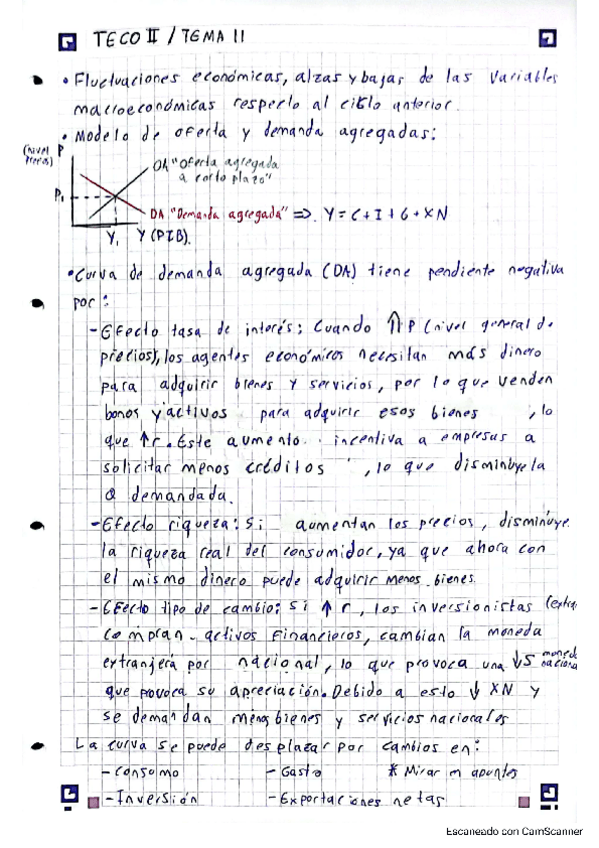 TECO II / TEMA 11
• Fluctuaciones económicas, alzas y bajas de las variables
macroeconómicas respecto al ciclo anterior.
• Modelo de oferta y demanda agregadas:
(nivel precios) P
OA "Oferta agregada
a corto plazo"
P₁
DA "Demanda agregada" => Y = C + I + G + XN
Y₁ Y (PIB).
• Curva de demanda agregada (DA) tiene pendiente negativa
por:
- Efecto tasa de interés: Cuando ↑P (nivel general de
precios), los agentes económicos necesitan más dinero
para adquirir bienes y servicios, por lo que venden
bonos y activos para adquirir esos bienes, lo
que ↑r. Este aumento incentiva a empresas a
solicitar menos créditos, lo que disminuye la
Q demandada.
- Efecto riqueza: Si aumentan los precios, disminuye
la riqueza real del consumidor, ya que ahora con
el mismo dinero puede adquirir menos bienes.
- Efecto tipo de cambio: Si ↑r, los inversionistas (extra
compran activos financieros, cambian la moneda
extranjera por nacional, lo que provoca una ↓S moneda nacional
que provoca su apreciación. Debido a esto ↓ XN y
se demandan menos bienes y servicios nacionales
La curva se puede desplazar por cambios en:
- Consumo - Gasto * Mirar en apuntes
- Inversión - Exportaciones netas
Escaneado con CamScanner